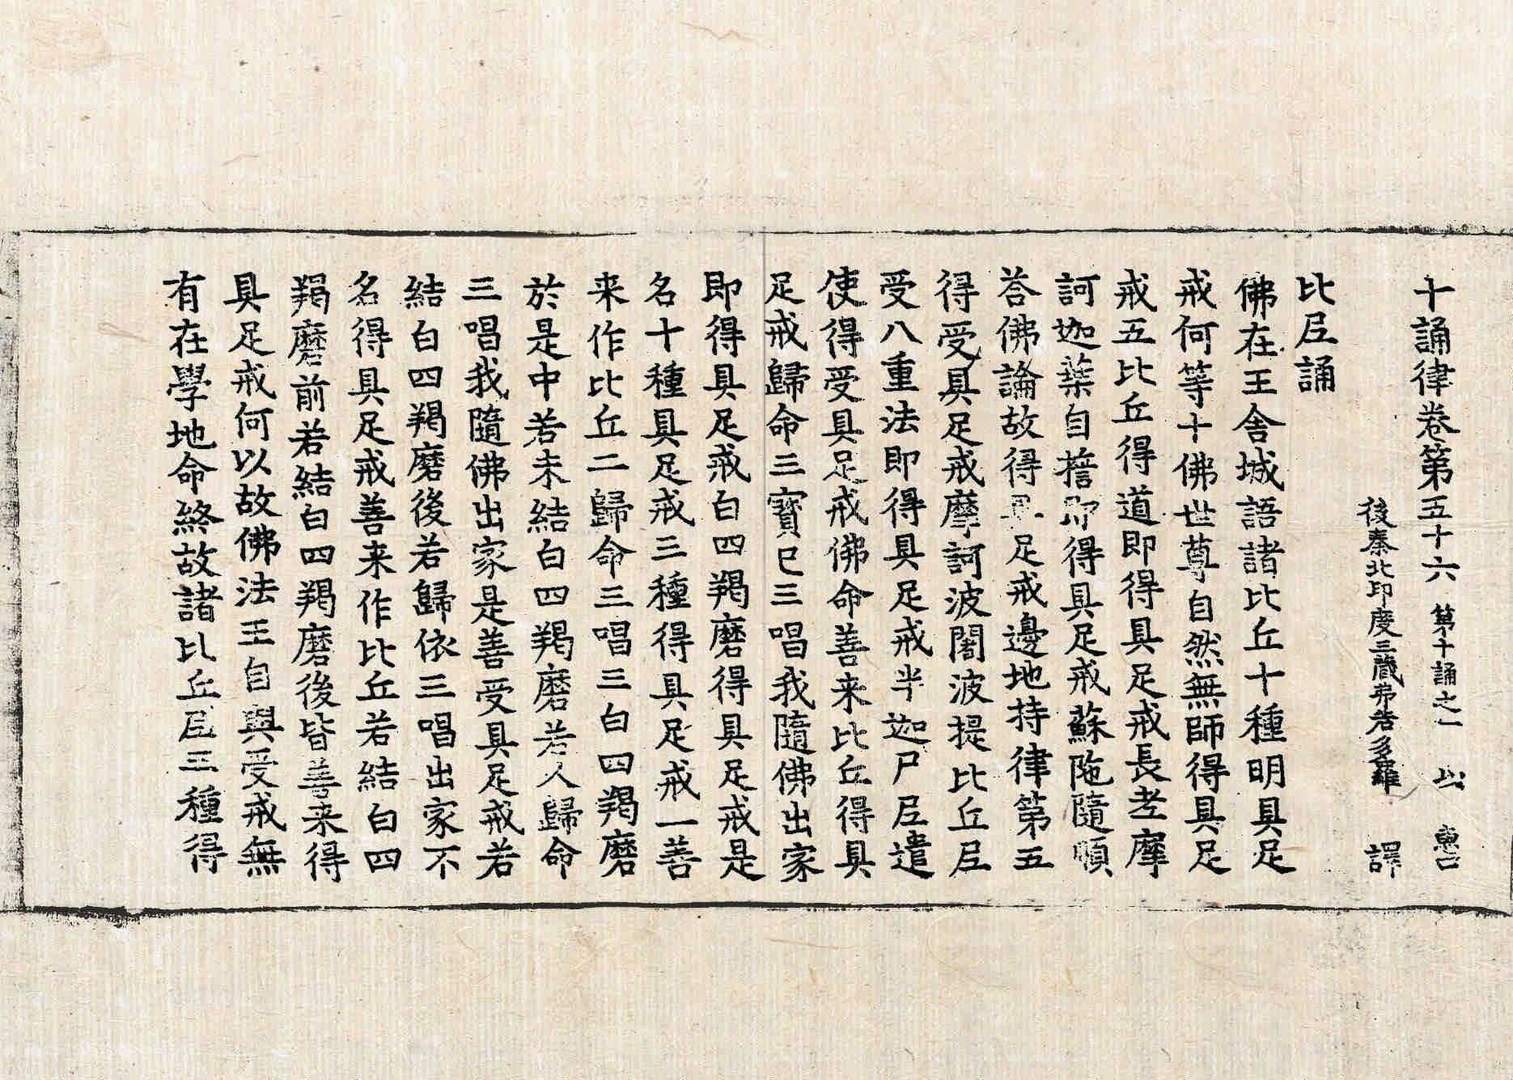 十誦律卷第五十六 第十誦之一
後秦北印度三藏弗若多羅 譯
比丘誦
佛在王舍城語諸比丘十種明具足
戒何等十佛世尊自然無師得具足
戒五比丘得道即得具足戒長老摩
訶迦葉自誓即得具足戒蘇陁隨順
荅佛論故得具足戒邊地持律第五
得受具足戒摩訶波闍波提比丘尼
受八重法即得具足戒半迦尸尼遣
使得受具足戒佛命善来比丘得具
足戒歸命三寳已三唱我隨佛出家
即得具足戒白四羯磨得具足戒是
名十種具足戒三種得具足戒一善
来作比丘二歸命三唱三白四羯磨
於是中若未結白四羯磨若人歸命
三唱我隨佛出家是善受具足戒若
結白四羯磨後若歸依三唱出家不
名得具足戒善来作比丘若結白四
羯磨前若結白四羯磨後皆善来得
具足戒何以故佛法王自與受戒無
有在學地命終故諸比丘尼三種得